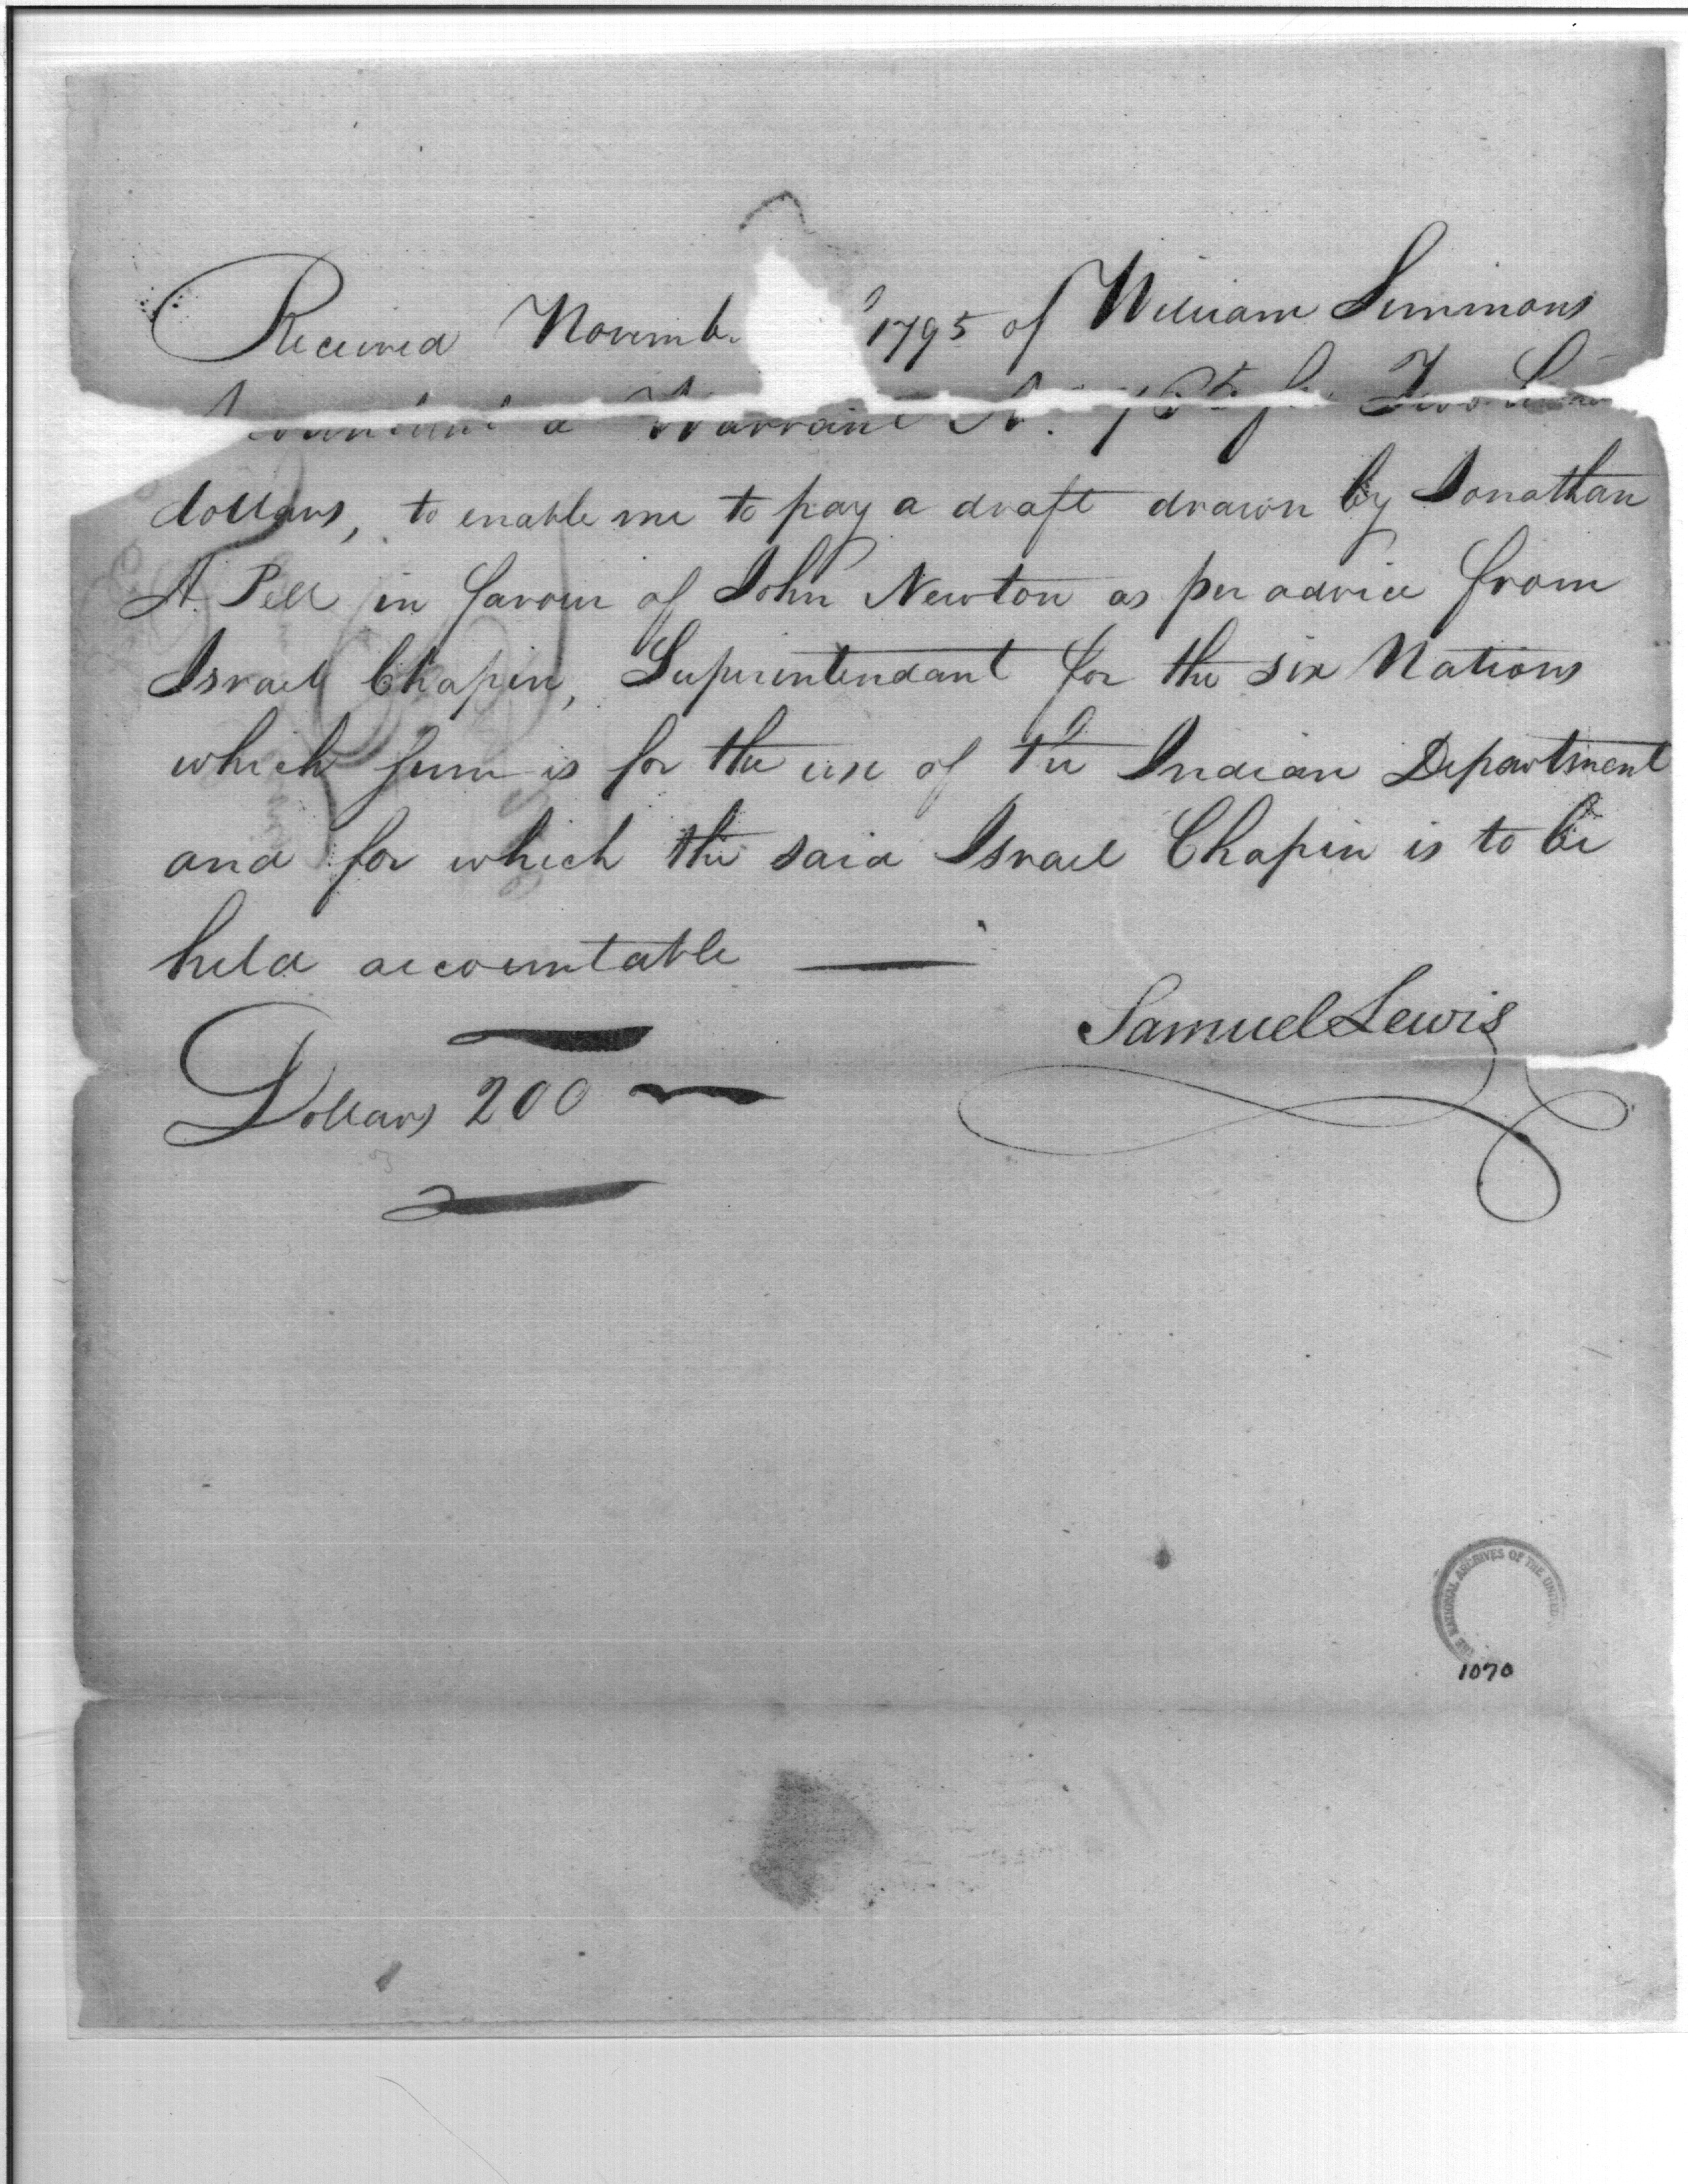 Received Novemb 1795 of William Simmons
a Warrant Two
dollars, to enable me to pay a draft drawn by Jonathan
A. Pell in favour of John Newton as per advice from
Israel Chapin, Superintendant for the six Nations
which sum is for the use of the Indian Department
and for which the said Israel Chapin is to be
held accountable
Samuel Lewis
Dollars 200
THE NATIONAL ARCHIVES OF THE UNITED
1070